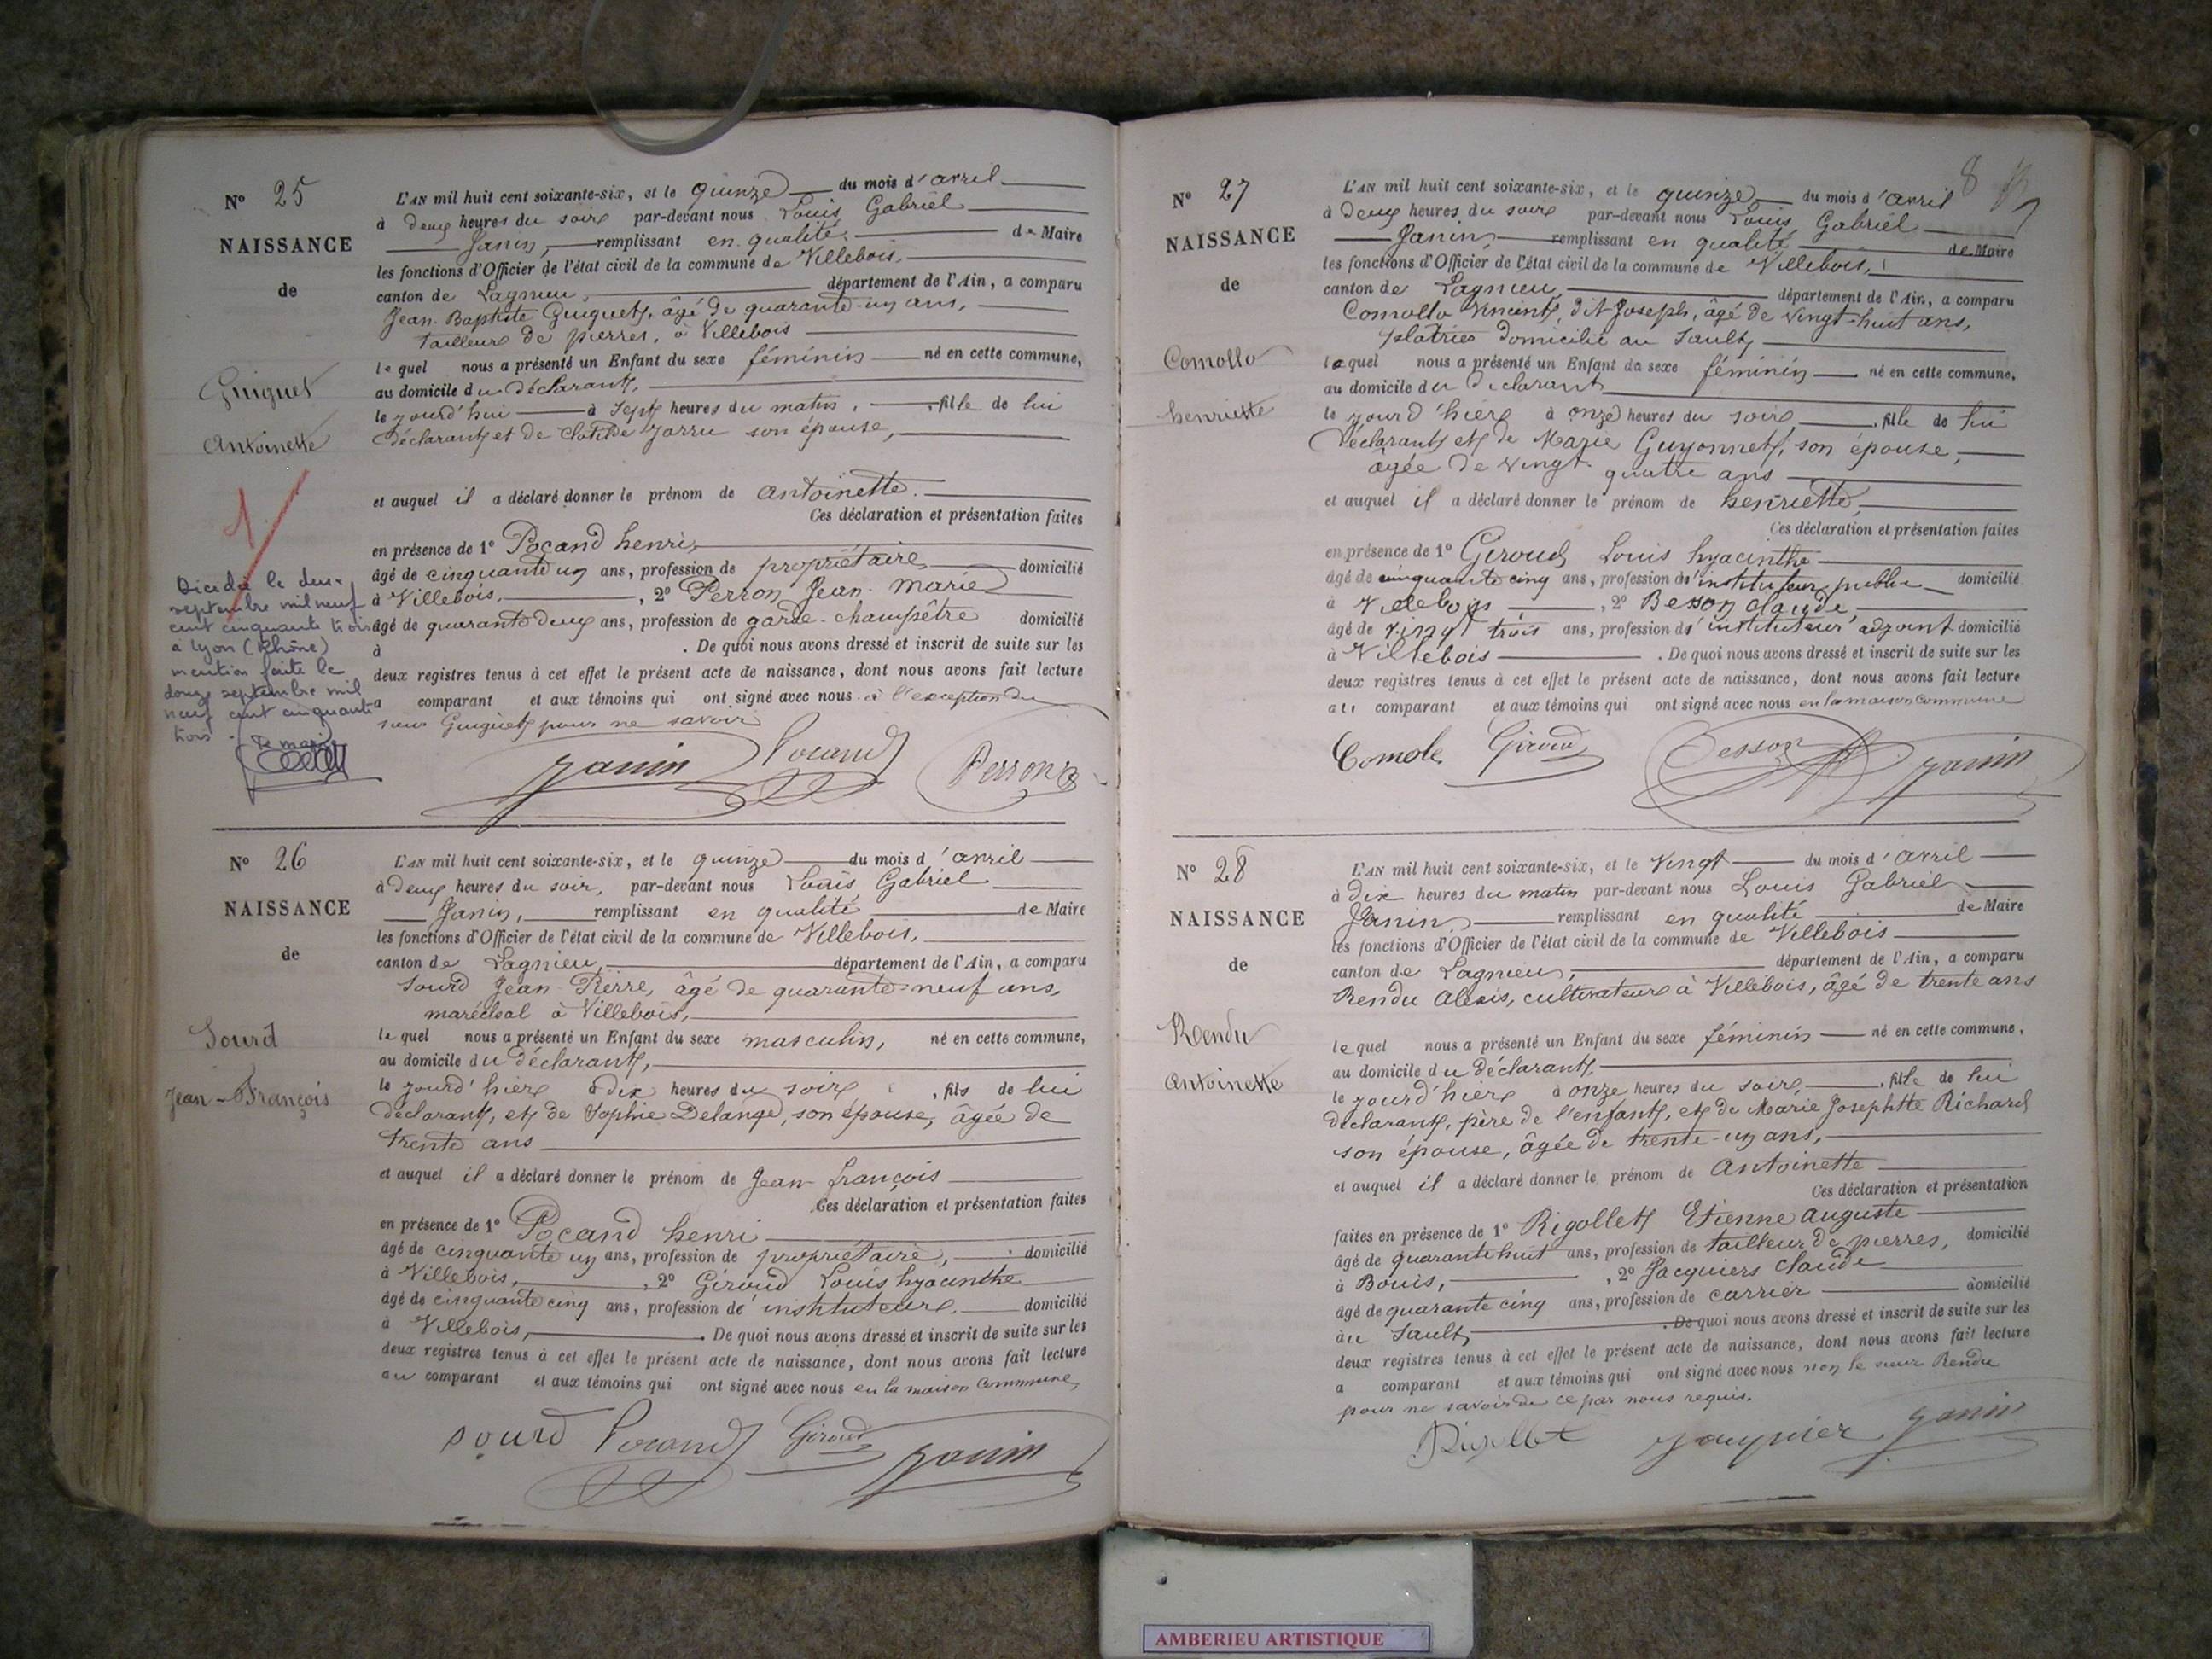 N° 25
NAISSANCE
de
Guiguet
Antoinette
1
Décédée le deux
septembre mil neuf
cent cinquante trois
a Lyon (Rhône)
mention faite le
douze septembre mil
neuf cent cinquante
trois. Le maire
L'AN mil huit cent soixante-six, et le quinze du mois d'avril
à deux heures du soir par-devant nous Louis Gabriel
Janin, remplissant en qualité de Maire
les fonctions d'Officier de l'état civil de la commune de Villebois,
canton de Lagnieu, département de l'Ain, a comparu
Jean-Baptiste Guiguet, âgé de quarante-un ans,
tailleur de pierres, à Villebois
lequel nous a présenté un Enfant du sexe féminin né en cette commune,
au domicile du déclarant,
le jourd'hui à sept heures du matin, fille de lui
déclarant et de Clotilde Jarru son épouse,
et auquel il a déclaré donner le prénom de Antoinette.
Ces déclaration et présentation faites
en présence de 1° Pocand henri,
âgé de cinquante un ans, profession de propriétaire domicilié
à Villebois, , 2° Perron Jean-Marie
âgé de quarante deux ans, profession de garde-champêtre domicilié
à . De quoi nous avons dressé et inscrit de suite sur les
deux registres tenus à cet effet le présent acte de naissance, dont nous avons fait lecture
a comparant et aux témoins qui ont signé avec nous à l'exception du
sieur Guiguet pour ne savoir
Janin Pocand Perron
N° 26
NAISSANCE
de
Sourd
Jean-François
L'AN mil huit cent soixante-six, et le quinze du mois d'avril
à deux heures du soir, par-devant nous Louis Gabriel
Janin, remplissant en qualité de Maire
les fonctions d'Officier de l'état civil de la commune de Villebois,
canton de Lagnieu, département de l'Ain, a comparu
Sourd Jean-Pierre, âgé de quarante-neuf ans,
maréchal à Villebois,
lequel nous a présenté un Enfant du sexe masculin, né en cette commune,
au domicile du déclarant,
le jourd'hier à dix heures du soir , fils de lui
déclarant, et de Sophie Delange, son épouse, âgée de
trente ans
et auquel il a déclaré donner le prénom de Jean-françois
Ces déclaration et présentation faites
en présence de 1° Pocand henri
âgé de cinquante un ans, profession de propriétaire, domicilié
à Villebois, , 2° Giroud Louis hyacinthe
âgé de cinquante cinq ans, profession de instituteur. domicilié
à Villebois, . De quoi nous avons dressé et inscrit de suite sur les
deux registres tenus à cet effet le présent acte de naissance, dont nous avons fait lecture
au comparant et aux témoins qui ont signé avec nous en la maison commune,
sourd Pocand Giroud Janin
8
N° 27
NAISSANCE
de
Comollo
henriette
L'AN mil huit cent soixante-six, et le quinze du mois d'avril
à deux heures du soir par-devant nous Louis Gabriel
Janin, remplissant en qualité de Maire
les fonctions d'Officier de l'état civil de la commune de Villebois,
canton de Lagnieu, département de l'Ain, a comparu
Comollo Vincent, dit Joseph, âgé de vingt-huit ans,
platrier domicilié au Sault,
lequel nous a présenté un Enfant du sexe féminin né en cette commune,
au domicile du déclarant
le jourd'hier à onze heures du soir, fille de lui
déclarant, et de Marie Guyonnet, son épouse,
âgée de vingt-quatre ans
et auquel il a déclaré donner le prénom de henriette,
Ces déclaration et présentation faites
en présence de 1° Giroud, Louis hyacinthe
âgé de cinquante cinq ans, profession d'instituteur public domicilié
à Villebois , 2° Besson claude
âgé de vingt trois ans, profession d'instituteur adjoint domicilié
à Villebois . De quoi nous avons dressé et inscrit de suite sur les
deux registres tenus à cet effet le présent acte de naissance, dont nous avons fait lecture
au comparant et aux témoins qui ont signé avec nous en la maison commune
Comole Giroud Besson Janin
N° 28
NAISSANCE
de
Rendu
Antoinette
L'AN mil huit cent soixante-six, et le vingt du mois d'avril
à dix heures du matin par-devant nous Louis Gabriel
Janin remplissant en qualité de Maire
les fonctions d'Officier de l'état civil de la commune de Villebois
canton de Lagnieu, département de l'Ain, a comparu
Rendu Alexis, cultivateur à Villebois, âgé de trente ans
lequel nous a présenté un Enfant du sexe féminin né en cette commune,
au domicile du déclarant,
le jourd'hier à onze heures du soir, fille de lui
déclarant, père de l'enfant, et de Marie Josephtte Richard
son épouse, âgée de trente-un ans,
et auquel il a déclaré donner le prénom de Antoinette
Ces déclaration et présentation
faites en présence de 1° Rigollet Etienne auguste
âgé de quarante huit ans, profession de tailleur de pierres, domicilié
à Bouis, , 2° Jacquiers claude
âgé de quarante cinq ans, profession de carrier domicilié
au Sault, . De quoi nous avons dressé et inscrit de suite sur les
deux registres tenus à cet effet le présent acte de naissance, dont nous avons fait lecture
a comparant et aux témoins qui ont signé avec nous non le sieur Rendu
pour ne savoir de ce par nous requis.
Rigollet Jacquier Janin
AMBERIEU ARTISTIQUE